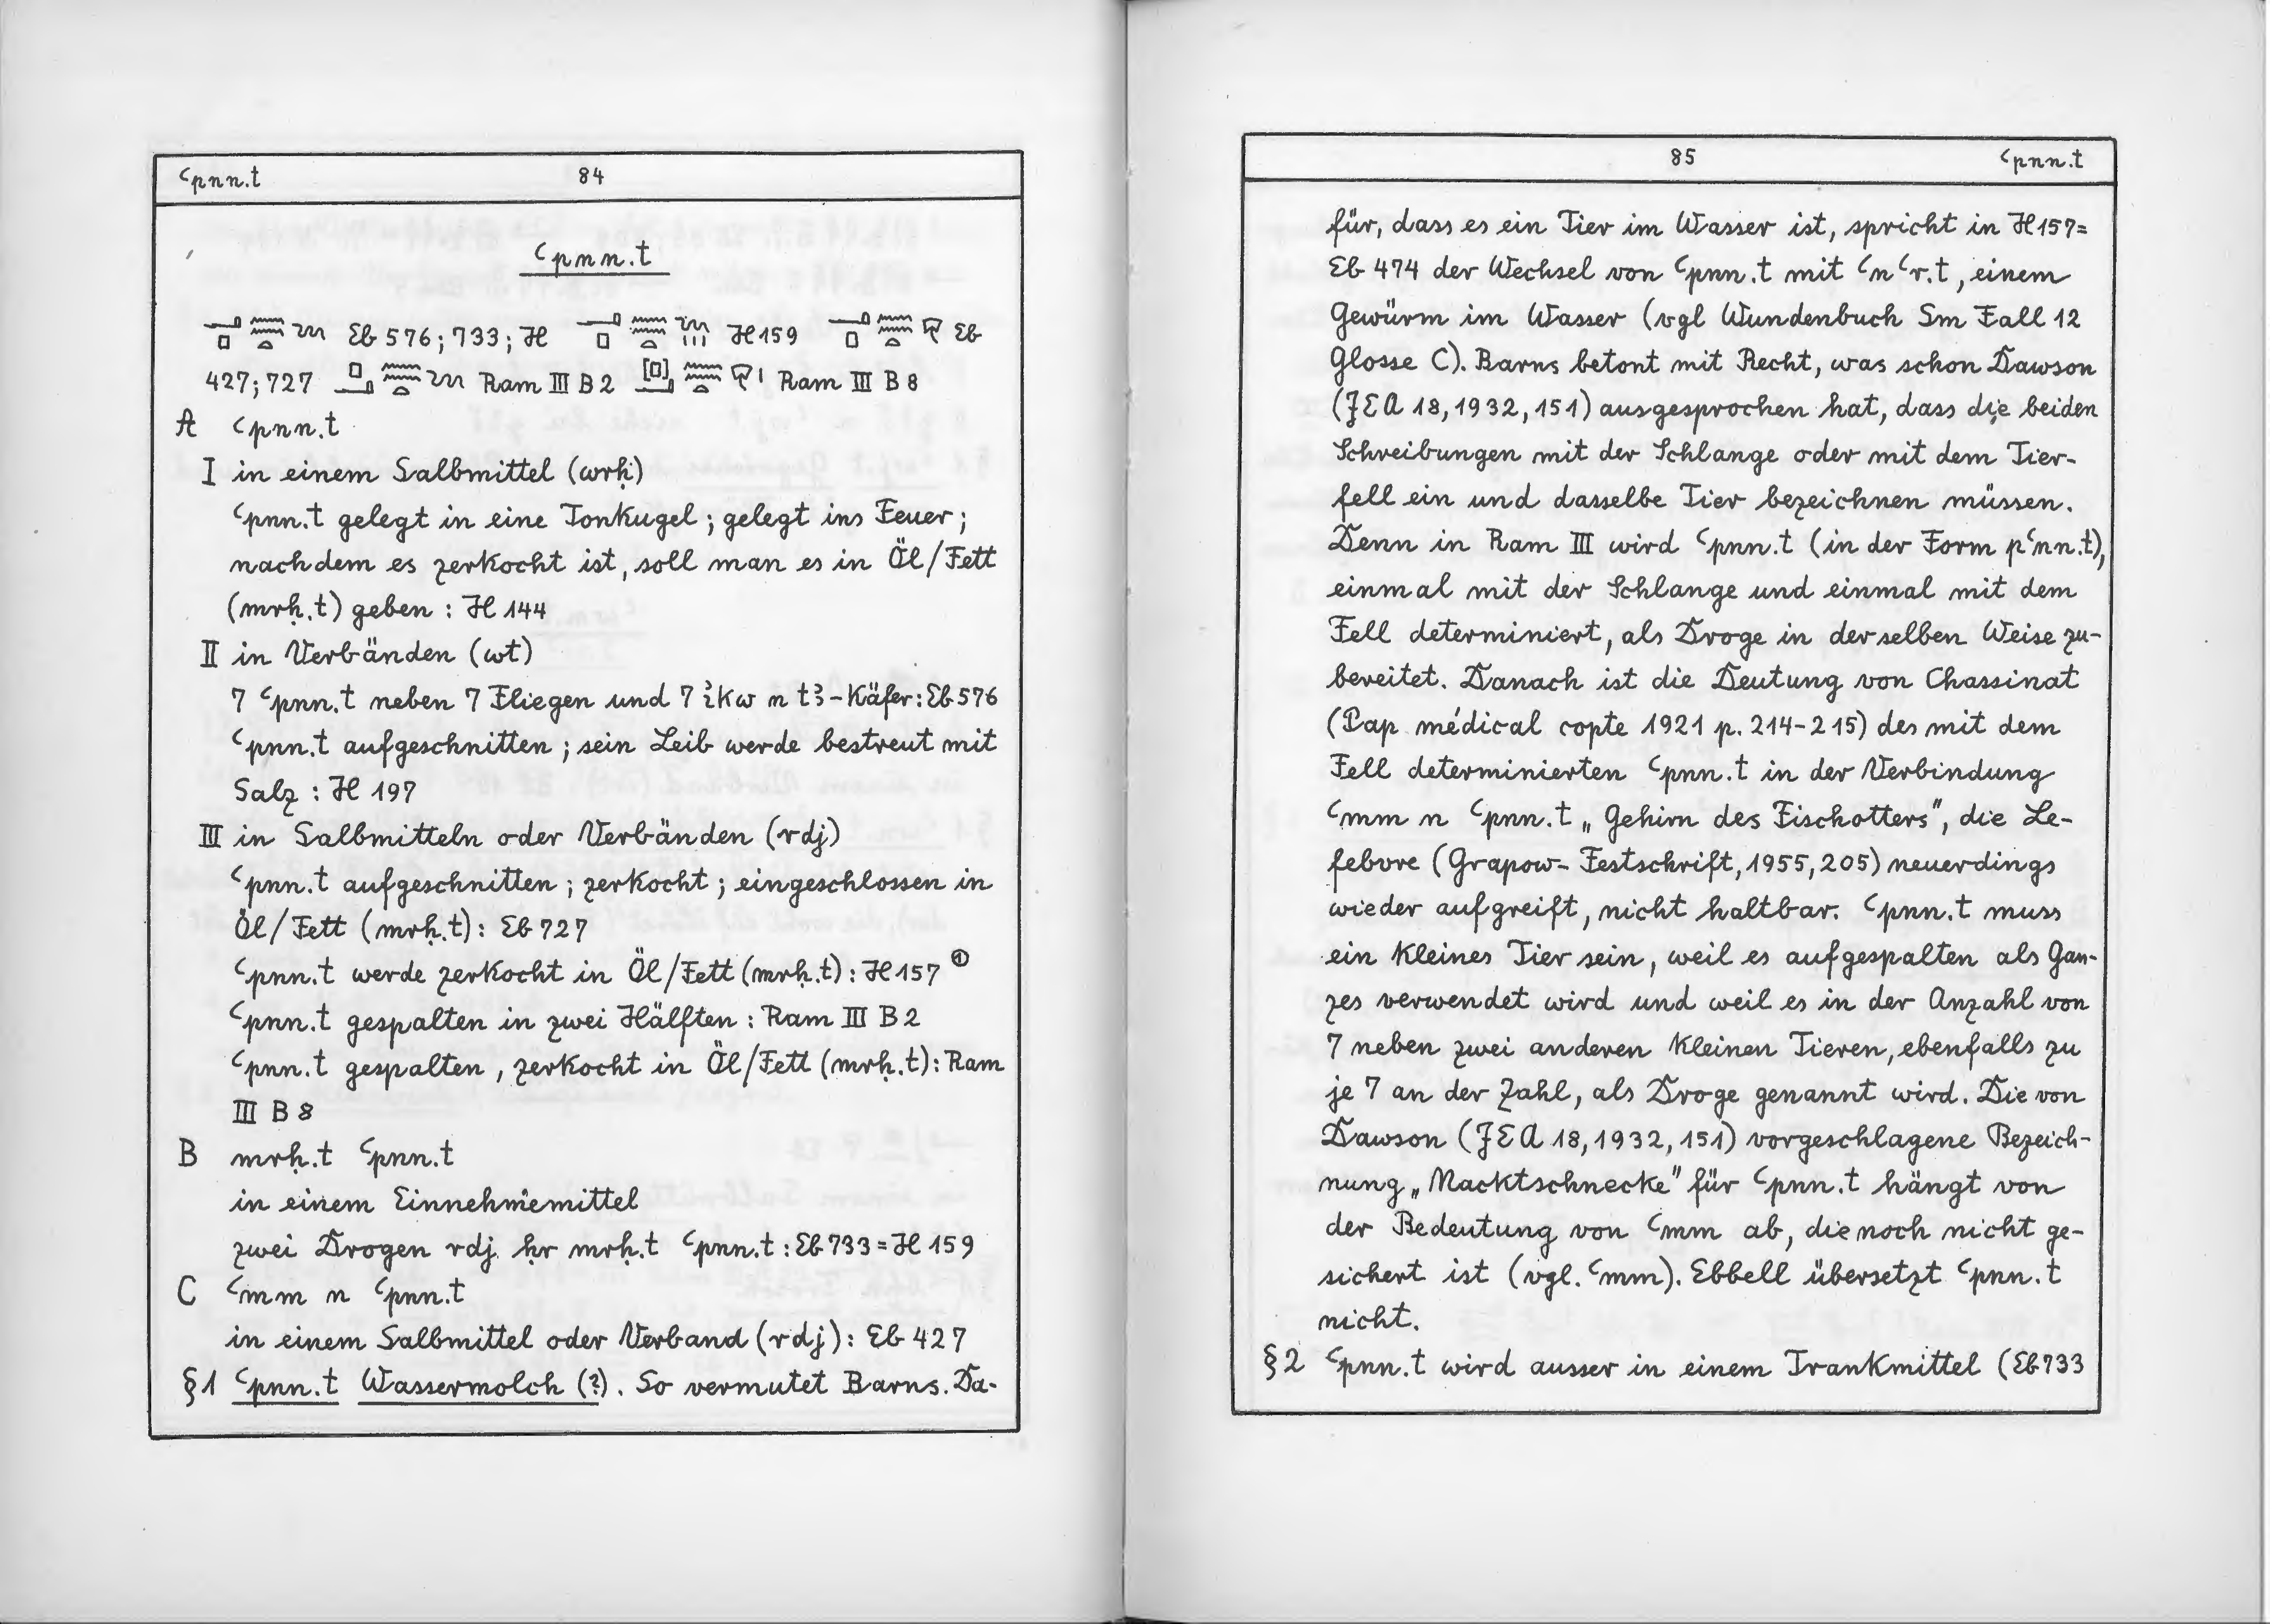 ꜥpnn.t 84
ꜥpnn.t
Eb 576; 733; H H 159 Eb
427; 727 Ram III B 2 Ram III B 8
A ꜥpnn.t
I in einem Salbmittel (wrḥ)
ꜥpnn.t gelegt in eine Tonkugel; gelegt ins Feuer;
nachdem es zerkocht ist, soll man es in Öl/Fett
(mrḥ.t) geben : H 144
II in Verbänden (wt)
7 ꜥpnn.t neben 7 Fliegen und 7 ꜣkw n tꜣ-Käfer: Eb 576
ꜥpnn.t aufgeschnitten; sein Leib werde bestreut mit
Salz : H 197
III in Salbmitteln oder Verbänden (rdj)
ꜥpnn.t aufgeschnitten; zerkocht; eingeschlossen in
Öl/Fett (mrḥ.t): Eb 727
ꜥpnn.t werde zerkocht in Öl/Fett (mrḥ.t): H 157 ①
ꜥpnn.t gespalten in zwei Hälften : Ram III B 2
ꜥpnn.t gespalten, zerkocht in Öl/Fett (mrḥ.t): Ram
III B 8
B mrḥ.t ꜥpnn.t
in einem Einnehmemittel
zwei Drogen rdj ḥr mrḥ.t ꜥpnn.t : Eb 733 = H 159
C ꜥmm n ꜥpnn.t
in einem Salbmittel oder Verband (rdj): Eb 427
§1 ꜥpnn.t Wassermolch (?). So vermutet Barns. Da-
85 ꜥpnn.t
für, dass es ein Tier im Wasser ist, spricht in H 157=
Eb 474 der Wechsel von ꜥpnn.t mit ꜥnꜥr.t, einem
Gewürm im Wasser (vgl Wundenbuch Sm Fall 12
Glosse C). Barns betont mit Recht, was schon Dawson
(JEA 18, 1932, 151) ausgesprochen hat, dass die beiden
Schreibungen mit der Schlange oder mit dem Tier-
fell ein und dasselbe Tier bezeichnen müssen.
Denn in Ram III wird ꜥpnn.t (in der Form pꜥnn.t),
einmal mit der Schlange und einmal mit dem
Fell determiniert, als Droge in derselben Weise zu-
bereitet. Danach ist die Deutung von Chassinat
(Pap médical copte 1921 p. 214-215) des mit dem
Fell determinierten ꜥpnn.t in der Verbindung
ꜥmm n ꜥpnn.t „Gehirn des Fischotters", die Le-
febvre (Grapow-Festschrift, 1955, 205) neuerdings
wieder aufgreift, nicht haltbar. ꜥpnn.t muss
ein kleines Tier sein, weil es aufgespalten als Gan-
zes verwendet wird und weil es in der Anzahl von
7 neben zwei anderen kleinen Tieren, ebenfalls zu
je 7 an der Zahl, als Droge genannt wird. Die von
Dawson (JEA 18, 1932, 151) vorgeschlagene Bezeich-
nung „Nacktschnecke" für ꜥpnn.t hängt von
der Bedeutung von ꜥmm ab, die noch nicht ge-
sichert ist (vgl. ꜥmm). Ebbell übersetzt ꜥpnn.t
nicht.
§2 ꜥpnn.t wird ausser in einem Trankmittel (Eb 733